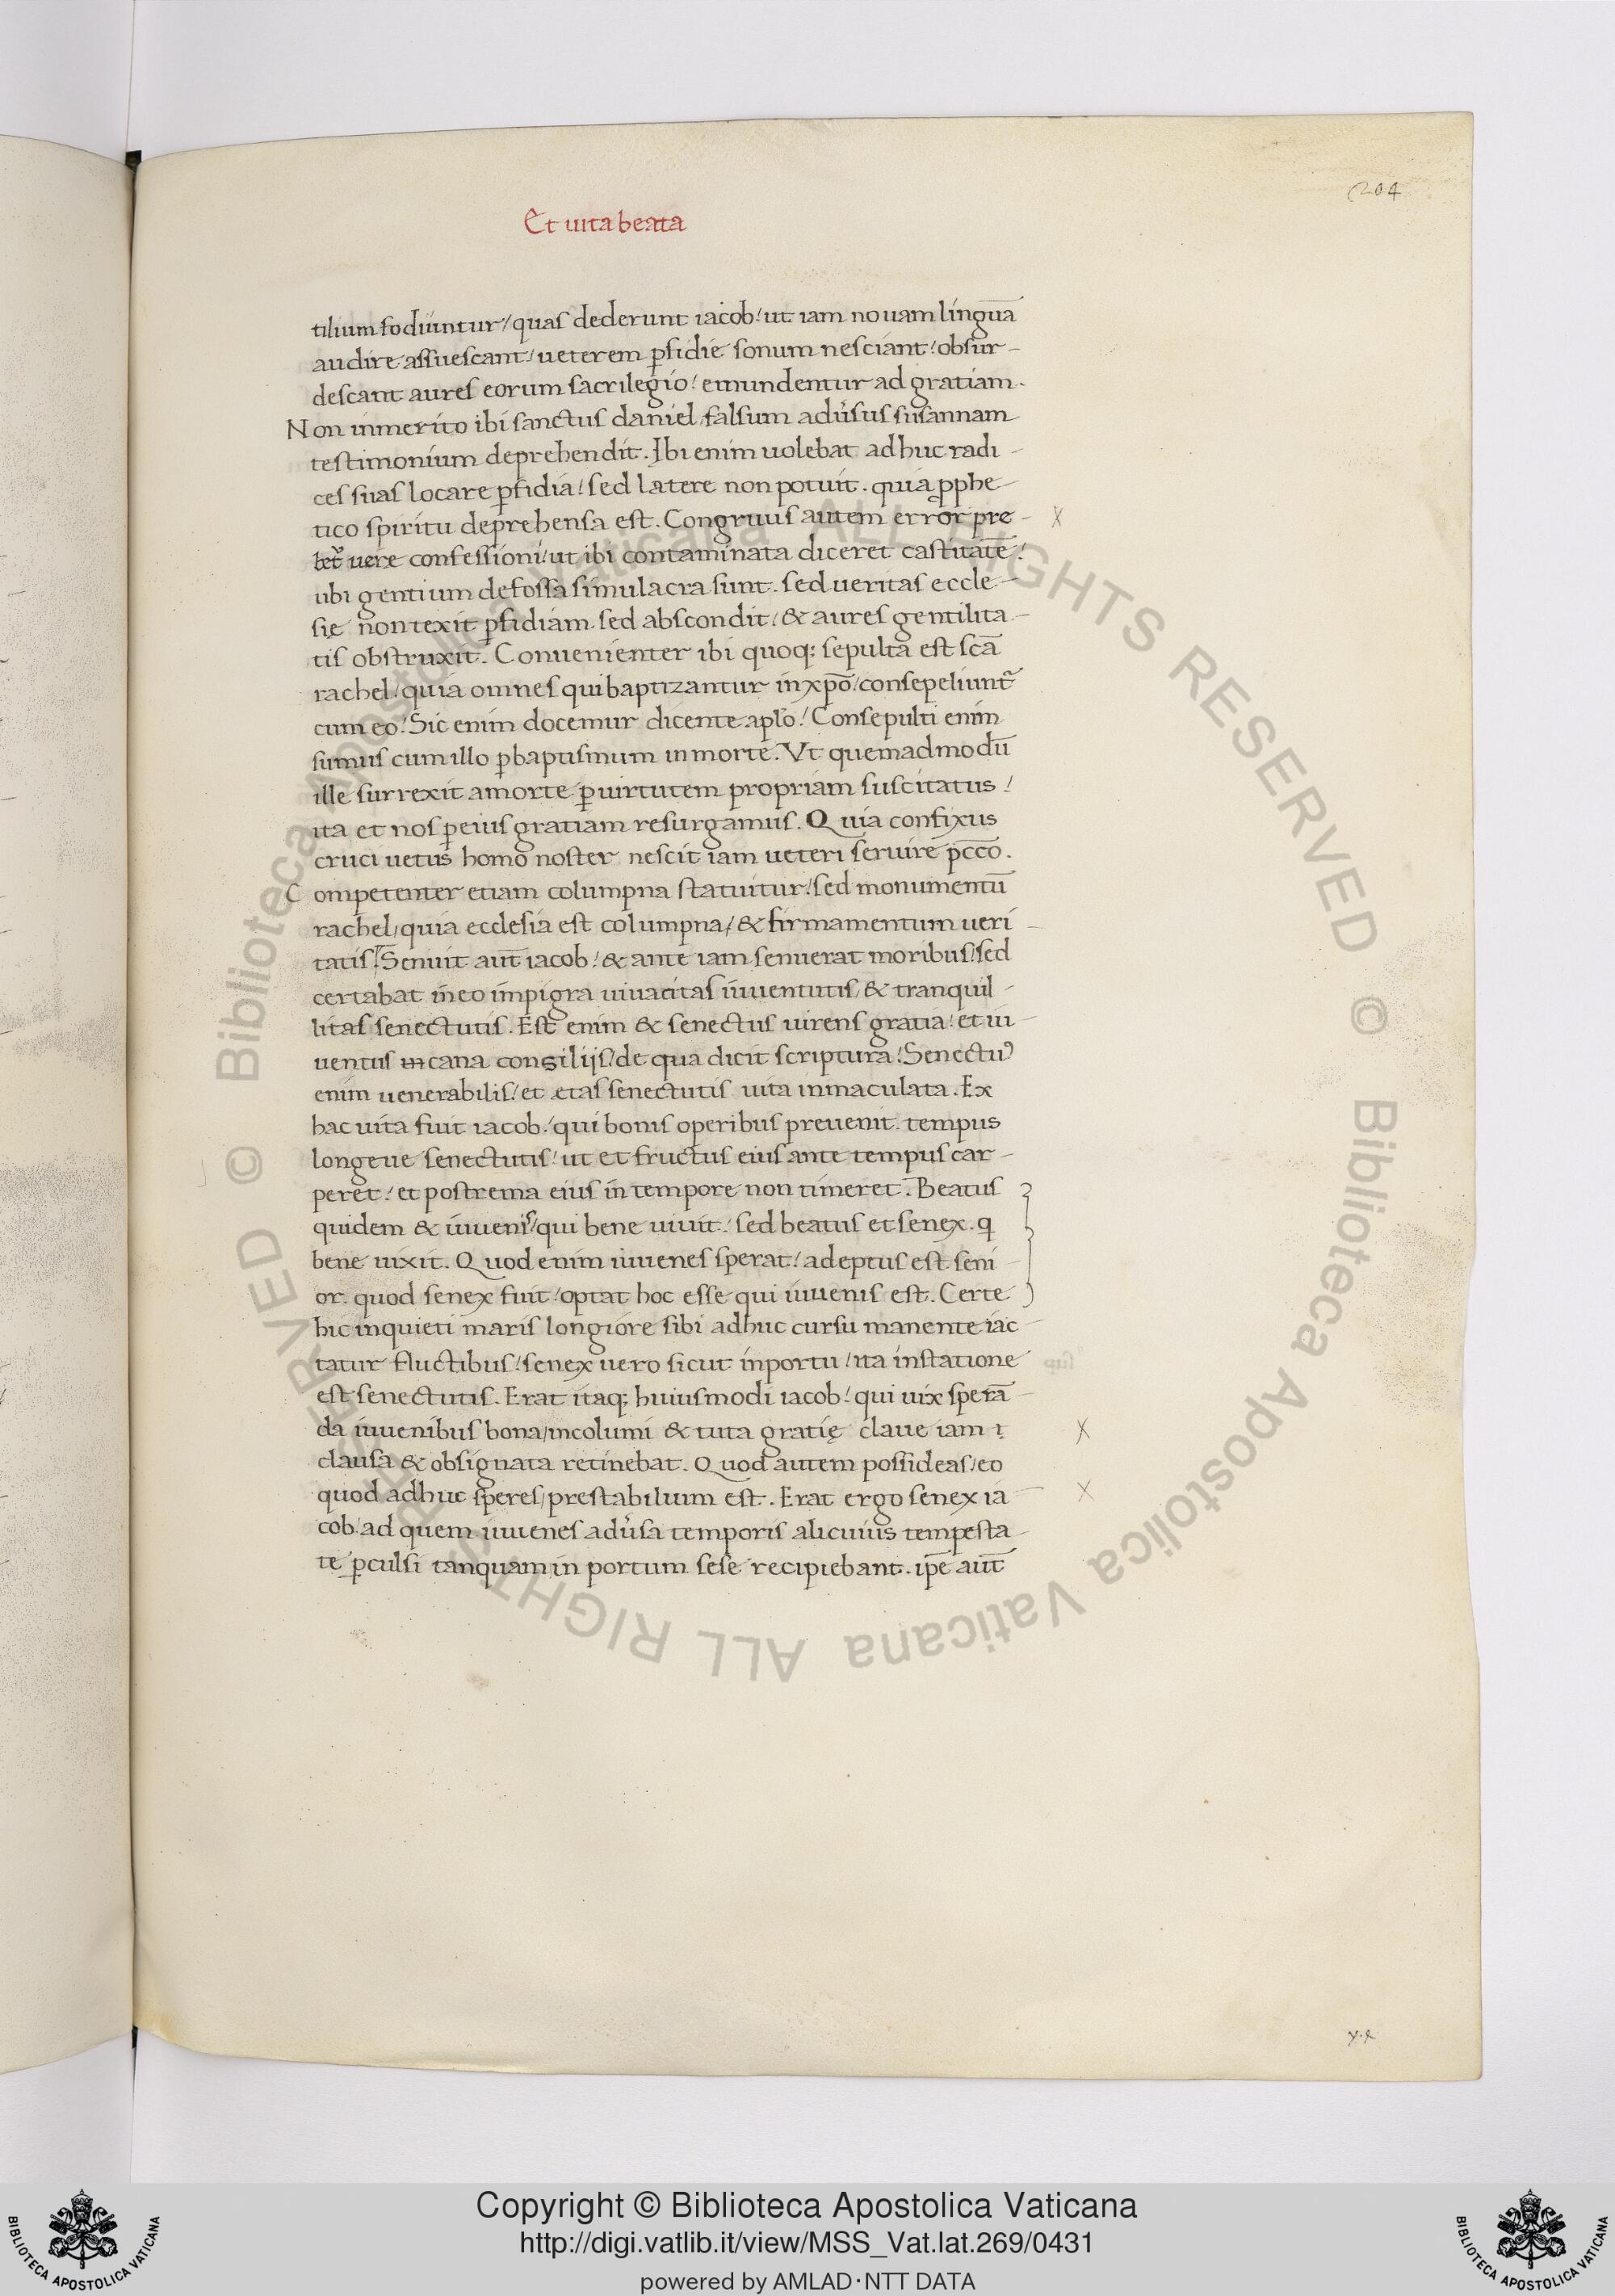 204
Et uita beata
tilium fodiuntur / quas dederunt iacob / ut iam nouam linguā
audire assuescant / ueterem ꝑfidie sonum nesciant / obsur-
descant aures eorum sacrilegio / emundentur ad gratiam.
Non inmerito ibi sanctus daniel falsum adu͛sus susannam
testimonium deprehendit. Ibi enim uolebat adhuc radi-
ces suas locare ꝑfidia / sed latere non potuit. quia ꝓphe-
tico spiritu deprehensa est. Congruus autem error pre-
bet᷑ uere confessioni / ut ibi contaminata diceret castitatē /
ubi gentium defossa simulacra sunt. sed ueritas eccle-
sie non texit ꝑfidiam sed abscondit / & aures gentilita-
tis obstruxit. Conuenienter ibi quoq; sepulta est scā
rachel / quia omnes qui baptizantur in xp̄o / consepeliunt᷑
cum eo / Sic enim docemur dicente aplō / Consepulti enim
sumus cum illo ꝑ baptismum in mortē. Vt quemadmodū
ille surrexit a morte ꝑ uirtutem propriam suscitatus /
ita et nos ꝑ eius gratiam resurgamus. Quia confixus
cruci uetus homo noster nescit iam ueteri seruire pc̄co.
Competenter etiam columpna statuitur / sed monumentū
rachel / quia ecclesia est columpna / & firmamentum ueri-
tatis / Senuit aut̄ iacob / & ante iam senuerat moribus / sed
certabat in eo impigra uiuacitas iuuentutis / & tranquil-
litas senectutis. Est enim & senectus uirens gratia / et iu-
uentus in cana consilijs / de qua dicit scriptura / Senectuꝰ
enim uenerabilis / et etas senectutis uita inmaculata. Ex
hac uita fuit iacob / qui bonis operibus preuenit tempus
longeue senectutis / ut et fructus eius ante tempus car-
peret / et postrema eius in tempore non timeret. Beatus
quidem & iuuenis / qui bene uiuit / sed beatus et senex. q
bene uixit. Quod enim iuuenes sperat / adeptus est seni-
or. quod senex fuit / optat hoc esse qui iuuenis est. Certe
hic inquieti maris longiore sibi adhuc cursu manente iac-
tatur fluctibus / senex uero sicut in portu / ita in statione
est senectutis. Erat itaq; huiusmodi iacob / qui uix sperā-
da iuuenibus bona / incolumi & tuta gratię claue iam ı
clausa & obsignata retinebat. Quod autem possideas / eo
quod adhuc speres / prestabilium est. Erat ergo senex ia-
cob / ad quem iuuenes adu͛sa temporis alicuius tempesta-
te ꝑculsi tanquam in portum sese recipiebant. ip̄e aut̄
Copyright © Biblioteca Apostolica Vaticana
http://digi.vatlib.it/view/MSS_Vat.lat.269/0431
powered by AMLAD·NTT DATA
BIBLIOTECA APOSTOLICA VATICANA
BIBLIOTECA APOSTOLICA VATICANA
© Biblioteca Apostolica Vaticana ALL RIGHTS RESERVED
© Biblioteca Apostolica Vaticana ALL RIGHTS RESERVED